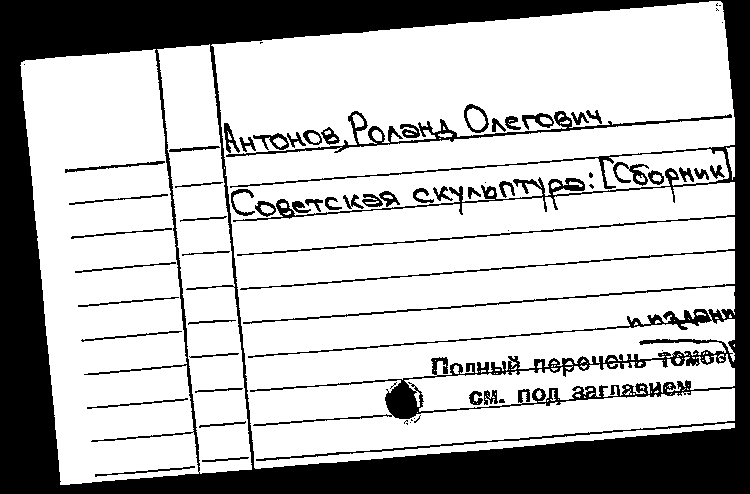 Антонов, Роланд Олегович.
Советская скульптура: [Сборник]
и издани
Полный перечень томов
см. под заглавием